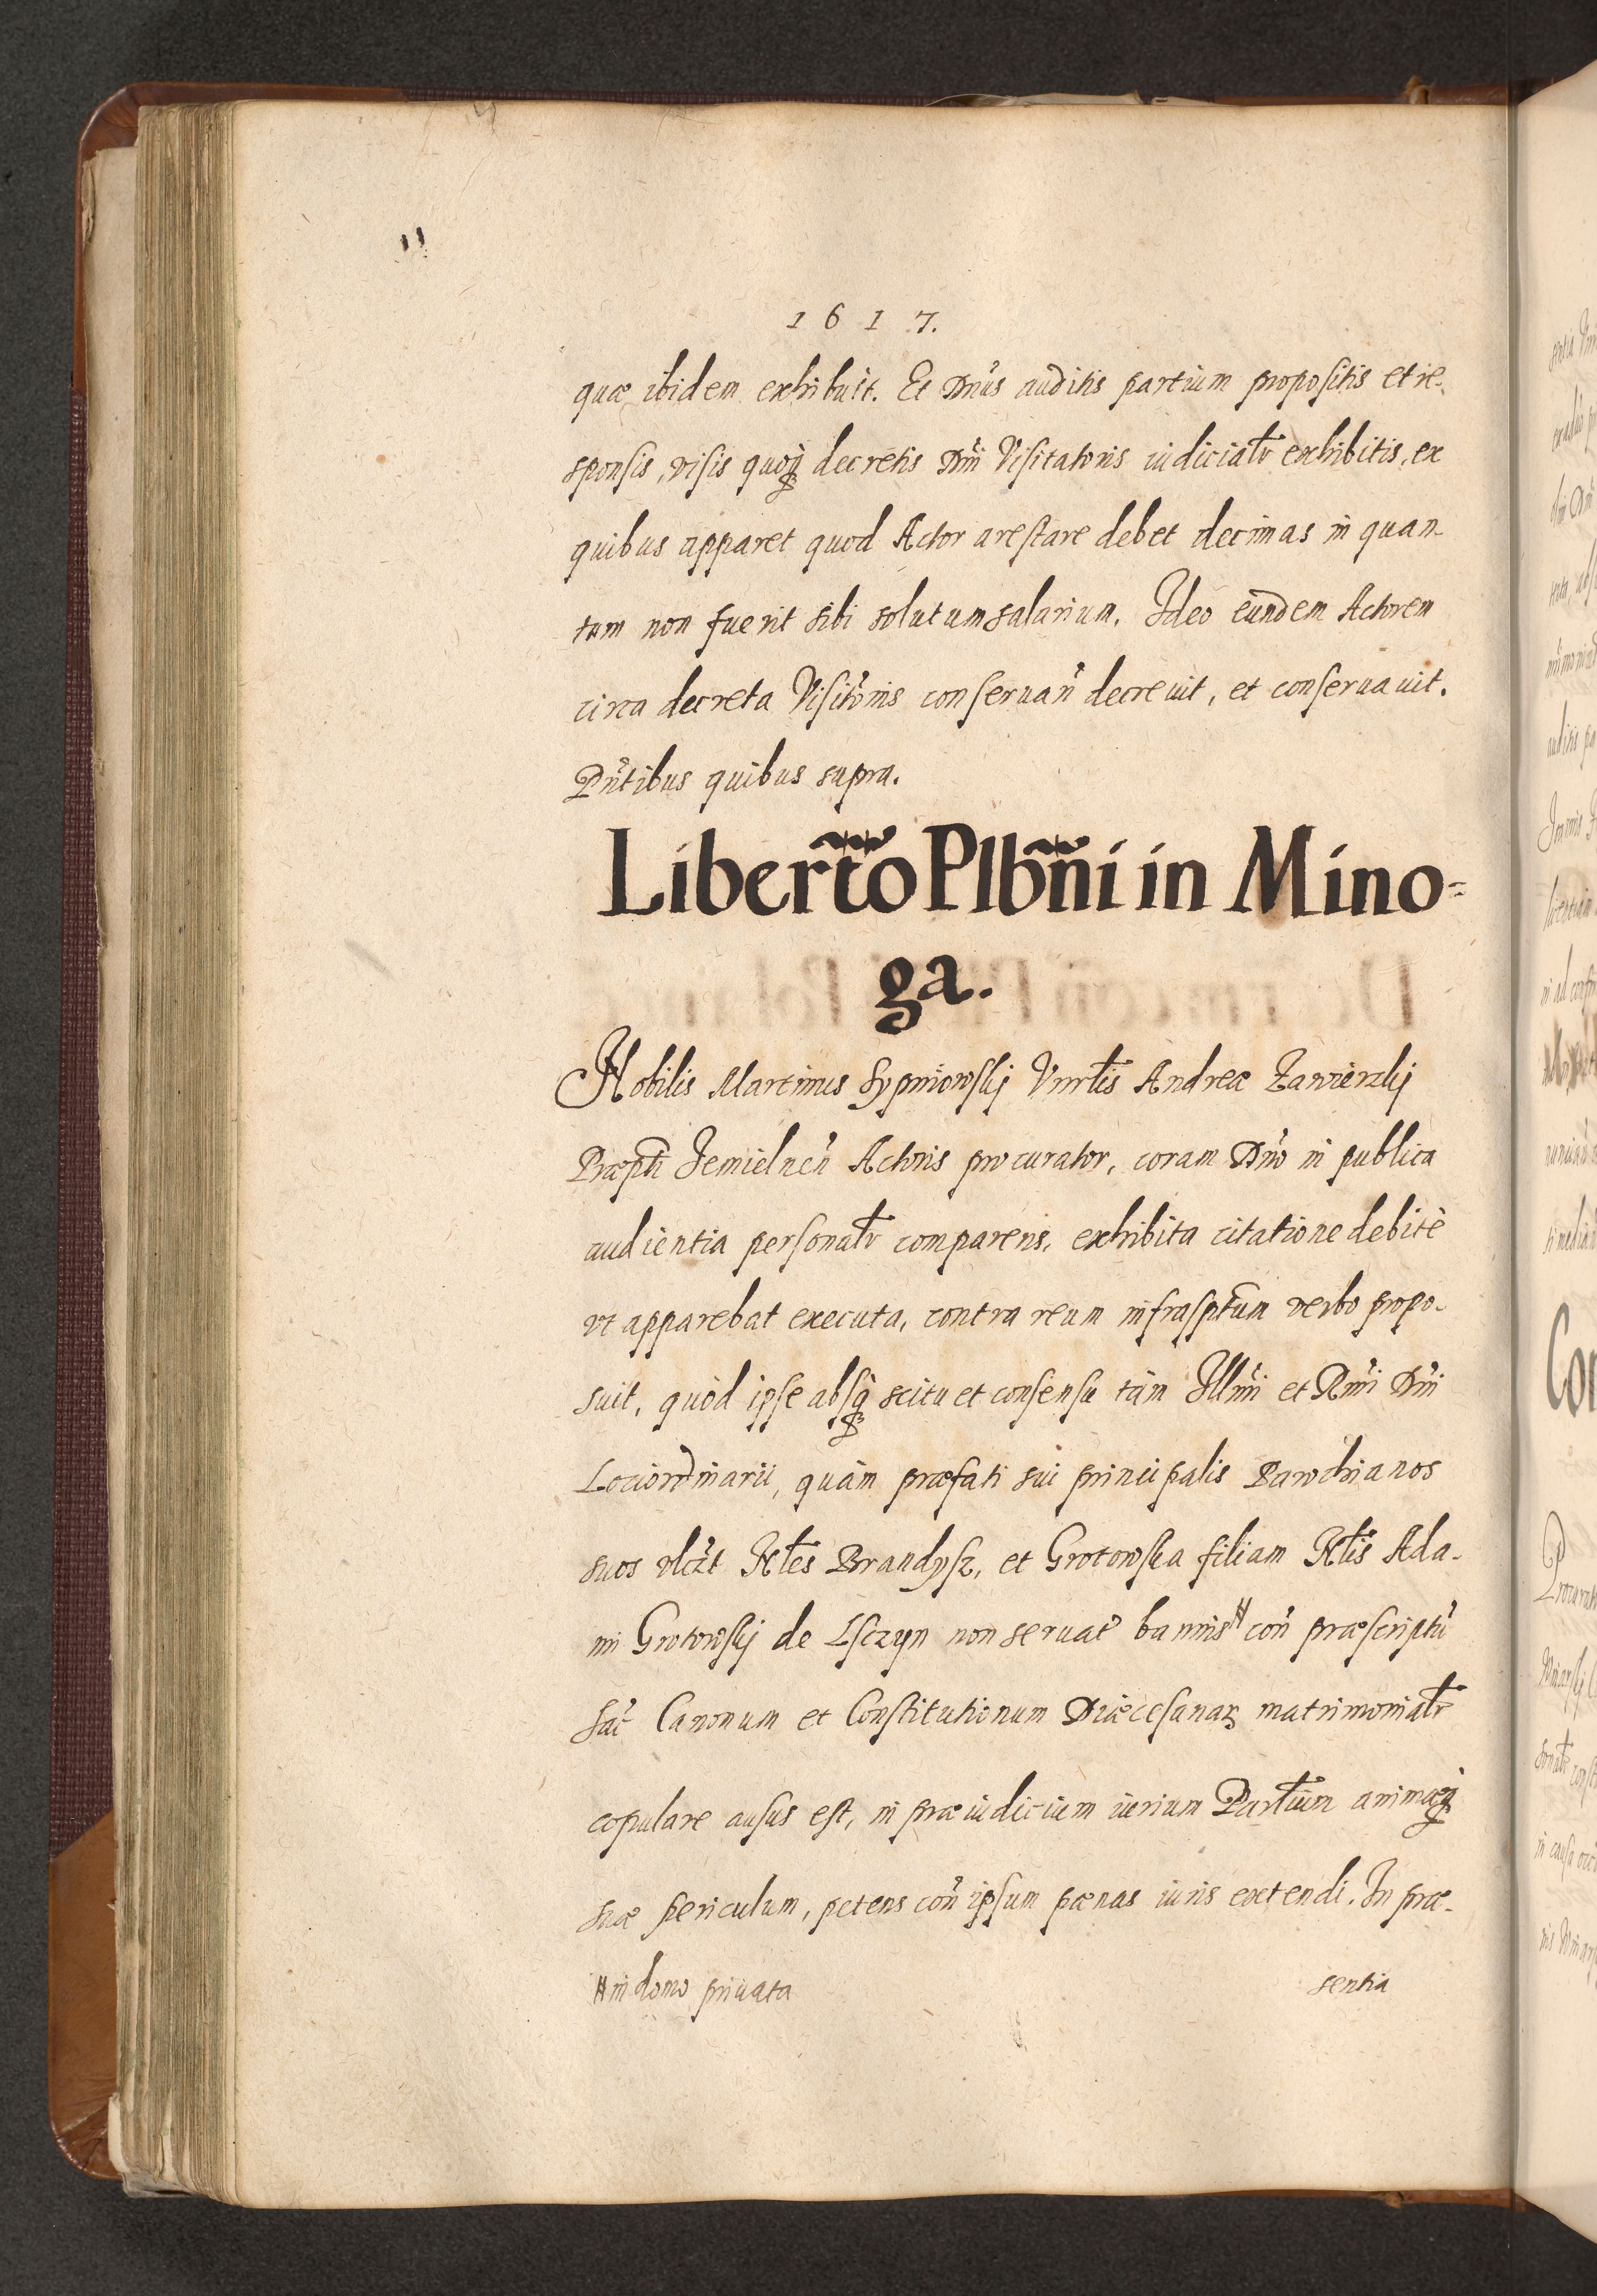 1617.
quæ ibidem exhibuit. Et Dnus auditis partium propositis et re-
sponsis, visis quoq decretis Dni Visitatoris iudicialr exhibitis, ex
quibus apparet quod Actor arestare debet decimas in quan-
tum non fuerit sibi solutum salarium. Ideo eundem Actorem
circa decreta Visitoris conseruan decreuit, et conseruauit.
Pntibus quibus supra.
Libertõ Plbñi in Mino=
ga.
Nobilis Martinus Sypniowskj Vnrlis Andreæ Zawierzkj
Præpti Jemielnen Actoris procurator, coram Dno in publica
audientia personalr comparens, exhibita citatione debitè
vt apparebat executa, contra reum infrasptum verbo propo-
suit, quòd ipse absq scitu et consensu tàm Illmi et Rmi Dni
Loci ordinarii, quàm præfati sui principalis Parochianos
suos vlczt Nles Brandysz, et Grotowska filiam Nlis Ada-
mi Grotowskj de Lsczyn non seruat bannis # con præscriptu
Sac Canonum et Constitutionum Diæcesanar matrimonialr
copulare ausus est, in præiudicium iurium Partium animæq
suæ periculum, petens con ipsum pænas iuris extendi. In præ-
# in domo priuata
sentia